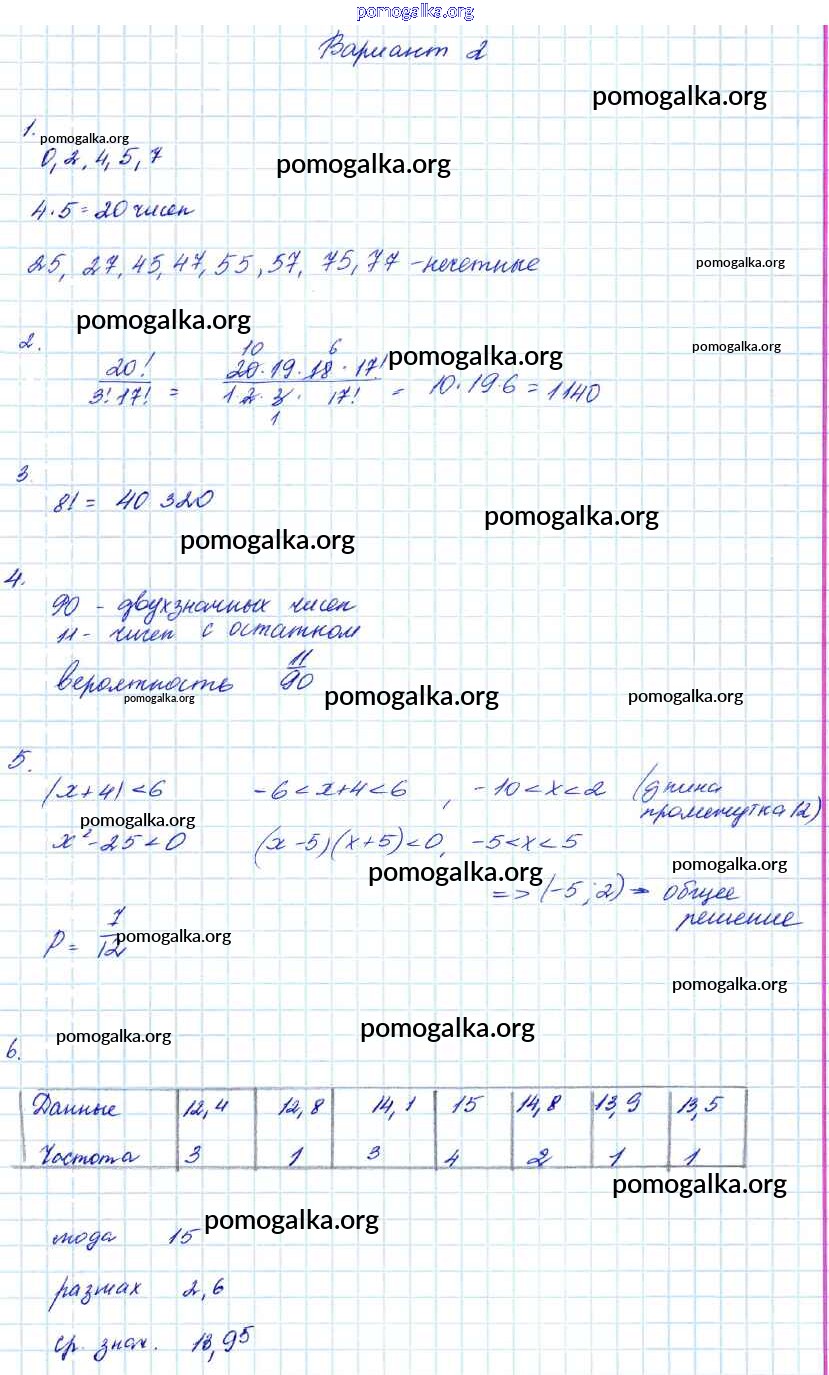 pomogalka.org
Вариант 2
pomogalka.org
1.
pomogalka.org
0, 2, 4, 5, 7
pomogalka.org
4·5=20 чисел
25, 27, 45, 47, 55, 57, 75, 77 - нечетные
pomogalka.org
pomogalka.org
2.
20! / 3!17! = 20·19·18·17! / 1 2·3· 17! = 10·19·6 = 1140
10 6
1
pomogalka.org
pomogalka.org
3.
8! = 40 320
pomogalka.org
pomogalka.org
4.
90 - двухзначных чисел
11 - чисел с остатком
вероятность 11/90
pomogalka.org
pomogalka.org
pomogalka.org
5.
|x+4|<6 -6<x+4<6, -10<x<2 (длина промежутка 12)
pomogalka.org
x²-25<0 (x-5)(x+5)<0, -5<x<5
pomogalka.org
pomogalka.org
=> (-5; 2) - общее
решение
P = 7/12
pomogalka.org
pomogalka.org
pomogalka.org
pomogalka.org
6.
Данные 12,4 12,8 14,1 15 14,8 13,9 13,5
Частота 3 1 3 4 2 1 1
pomogalka.org
мода 15
pomogalka.org
размах 2,6
ср. знач. 13,95